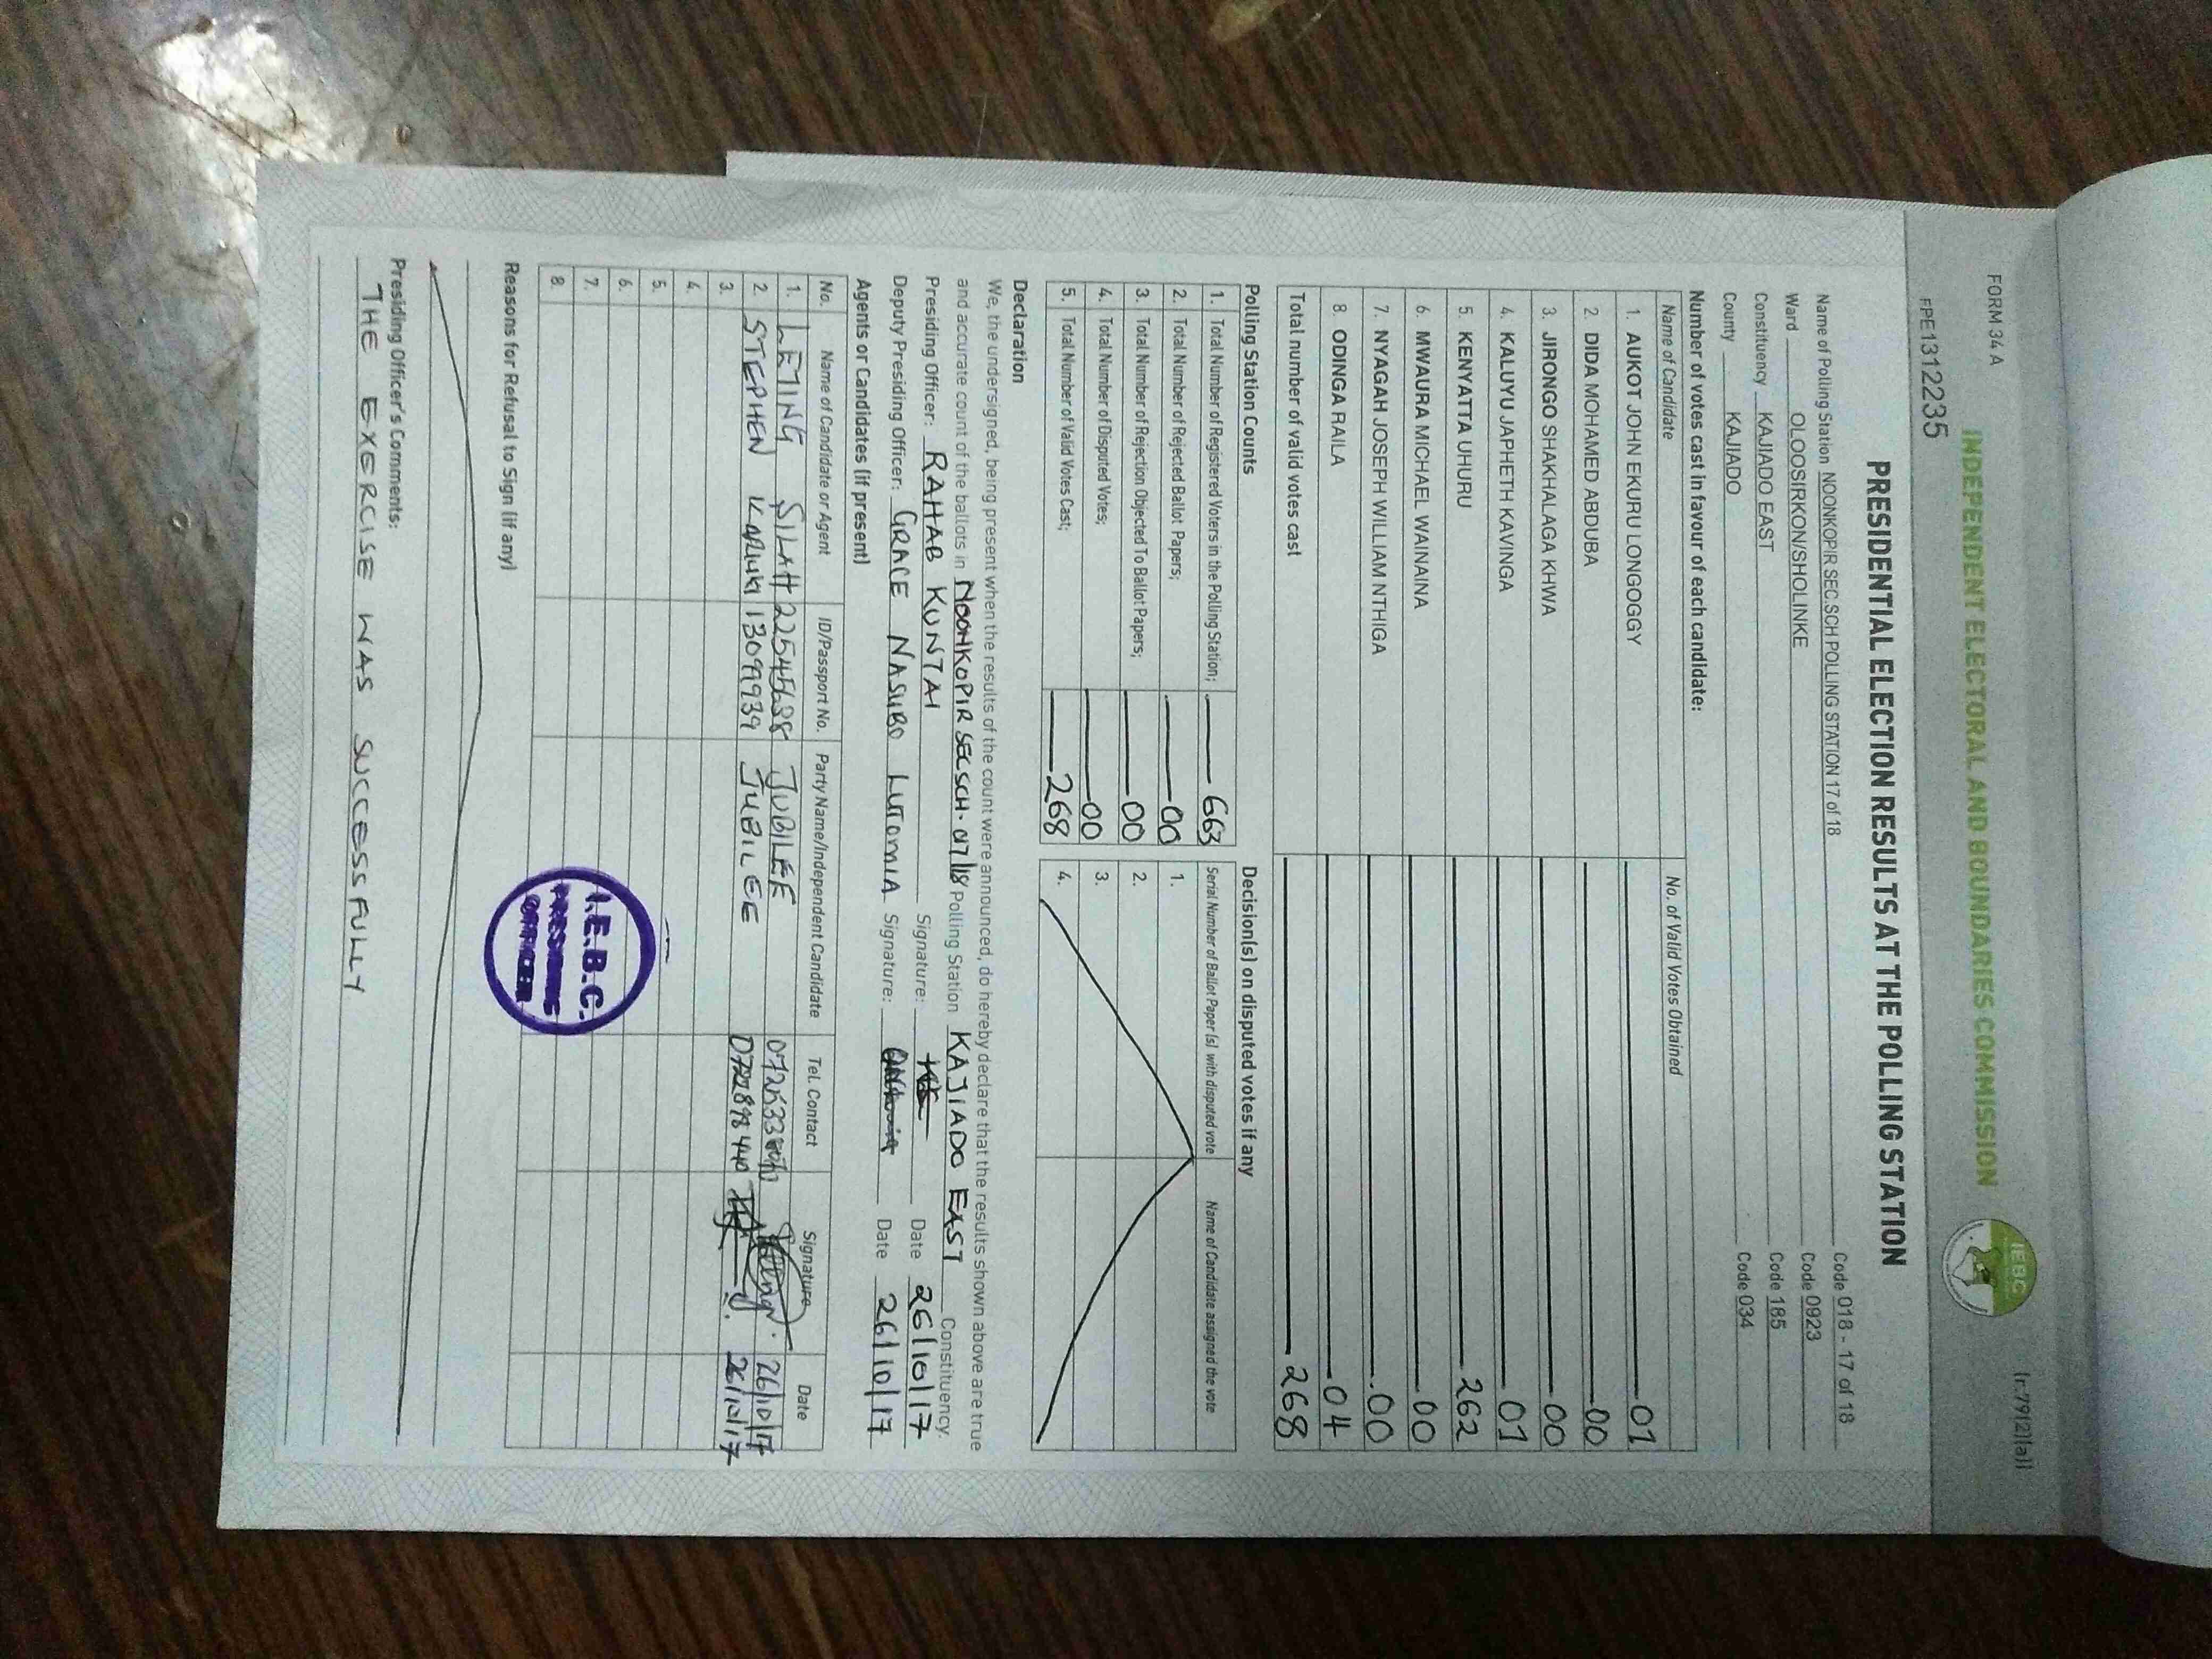 FORM 34 A
(r.79(2)(a))
FPE131235
INDEPENDENT ELECTORAL AND BOUNDARIES COMMISSION
IEBC
PRESIDENTIAL ELECTION RESULTS AT THE POLLING STATION
Name of Polling Station NOONKOPIR SEC.SCH POLLING STATION 17 of 18 Code 018 - 17 of 18
Ward OLOOSIRKON/SHOLINKE Code 0923
Constituency KAJIADO EAST Code 185
County KAJIADO Code 034
Number of votes cast in favour of each candidate:
Name of Candidate No. of Valid Votes Obtained
1. AUKOT JOHN EKURU LONGOGGY 01
2. DIDA MOHAMED ABDUBA 00
3. JIRONGO SHAKHALAGA KHWA 00
4. KALUYU JAPHETH KAVINGA 01
5. KENYATTA UHURU 262
6. MWAURA MICHAEL WAINAINA 00
7. NYAGAH JOSEPH WILLIAM NTHIGA 00
8. ODINGA RAILA 04
Total number of valid votes cast 268
Polling Station Counts
1. Total Number of Registered Voters in the Polling Station; 663
2. Total Number of Rejected Ballot Papers; 00
3. Total Number of Rejection Objected To Ballot Papers; 00
4. Total Number of Disputed Votes; 00
5. Total Number of Valid Votes Cast; 268
Decision(s) on disputed votes if any
Serial Number of Ballot Paper (s) with disputed vote Name of Candidate assigned the vote
1.
2.
3.
4.
Declaration
We, the undersigned, being present when the results of the count were announced, do hereby declare that the results shown above are true
and accurate count of the ballots in NOONKOPIR SEC SCH. Polling Station KAJIADO EAST Constituency.
Presiding Officer: RAHAB KUNTAI Signature: Date 26/10/17
Deputy Presiding Officer: GRACE NASIMBO LUTOMIA Signature: Date 26/10/17
Agents or Candidates (if present)
No. Name of Candidate or Agent ID/Passport No. Party Name/Independent Candidate Tel. Contact Signature Date
1. LETING SILAH 22545688 JUBILEE 26/10/17
2. STEPHEN KARIUKI 13099939 JUBILEE 26/10/17
3.
4.
5.
6.
7.
8.
I.E.B.C.
PRESIDING
OFFICER
Reasons for Refusal to Sign (if any)
Presiding Officer's Comments:
THE EXERCISE WAS SUCCESSFULLY